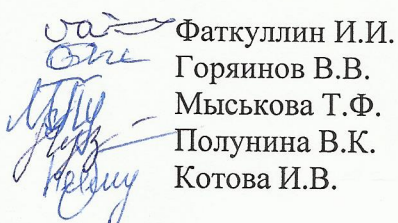 Фаткуллин И.И.
Горяинов В.В.
Мыськова Т.Ф.
Полунина В.К.
Котова И.В.